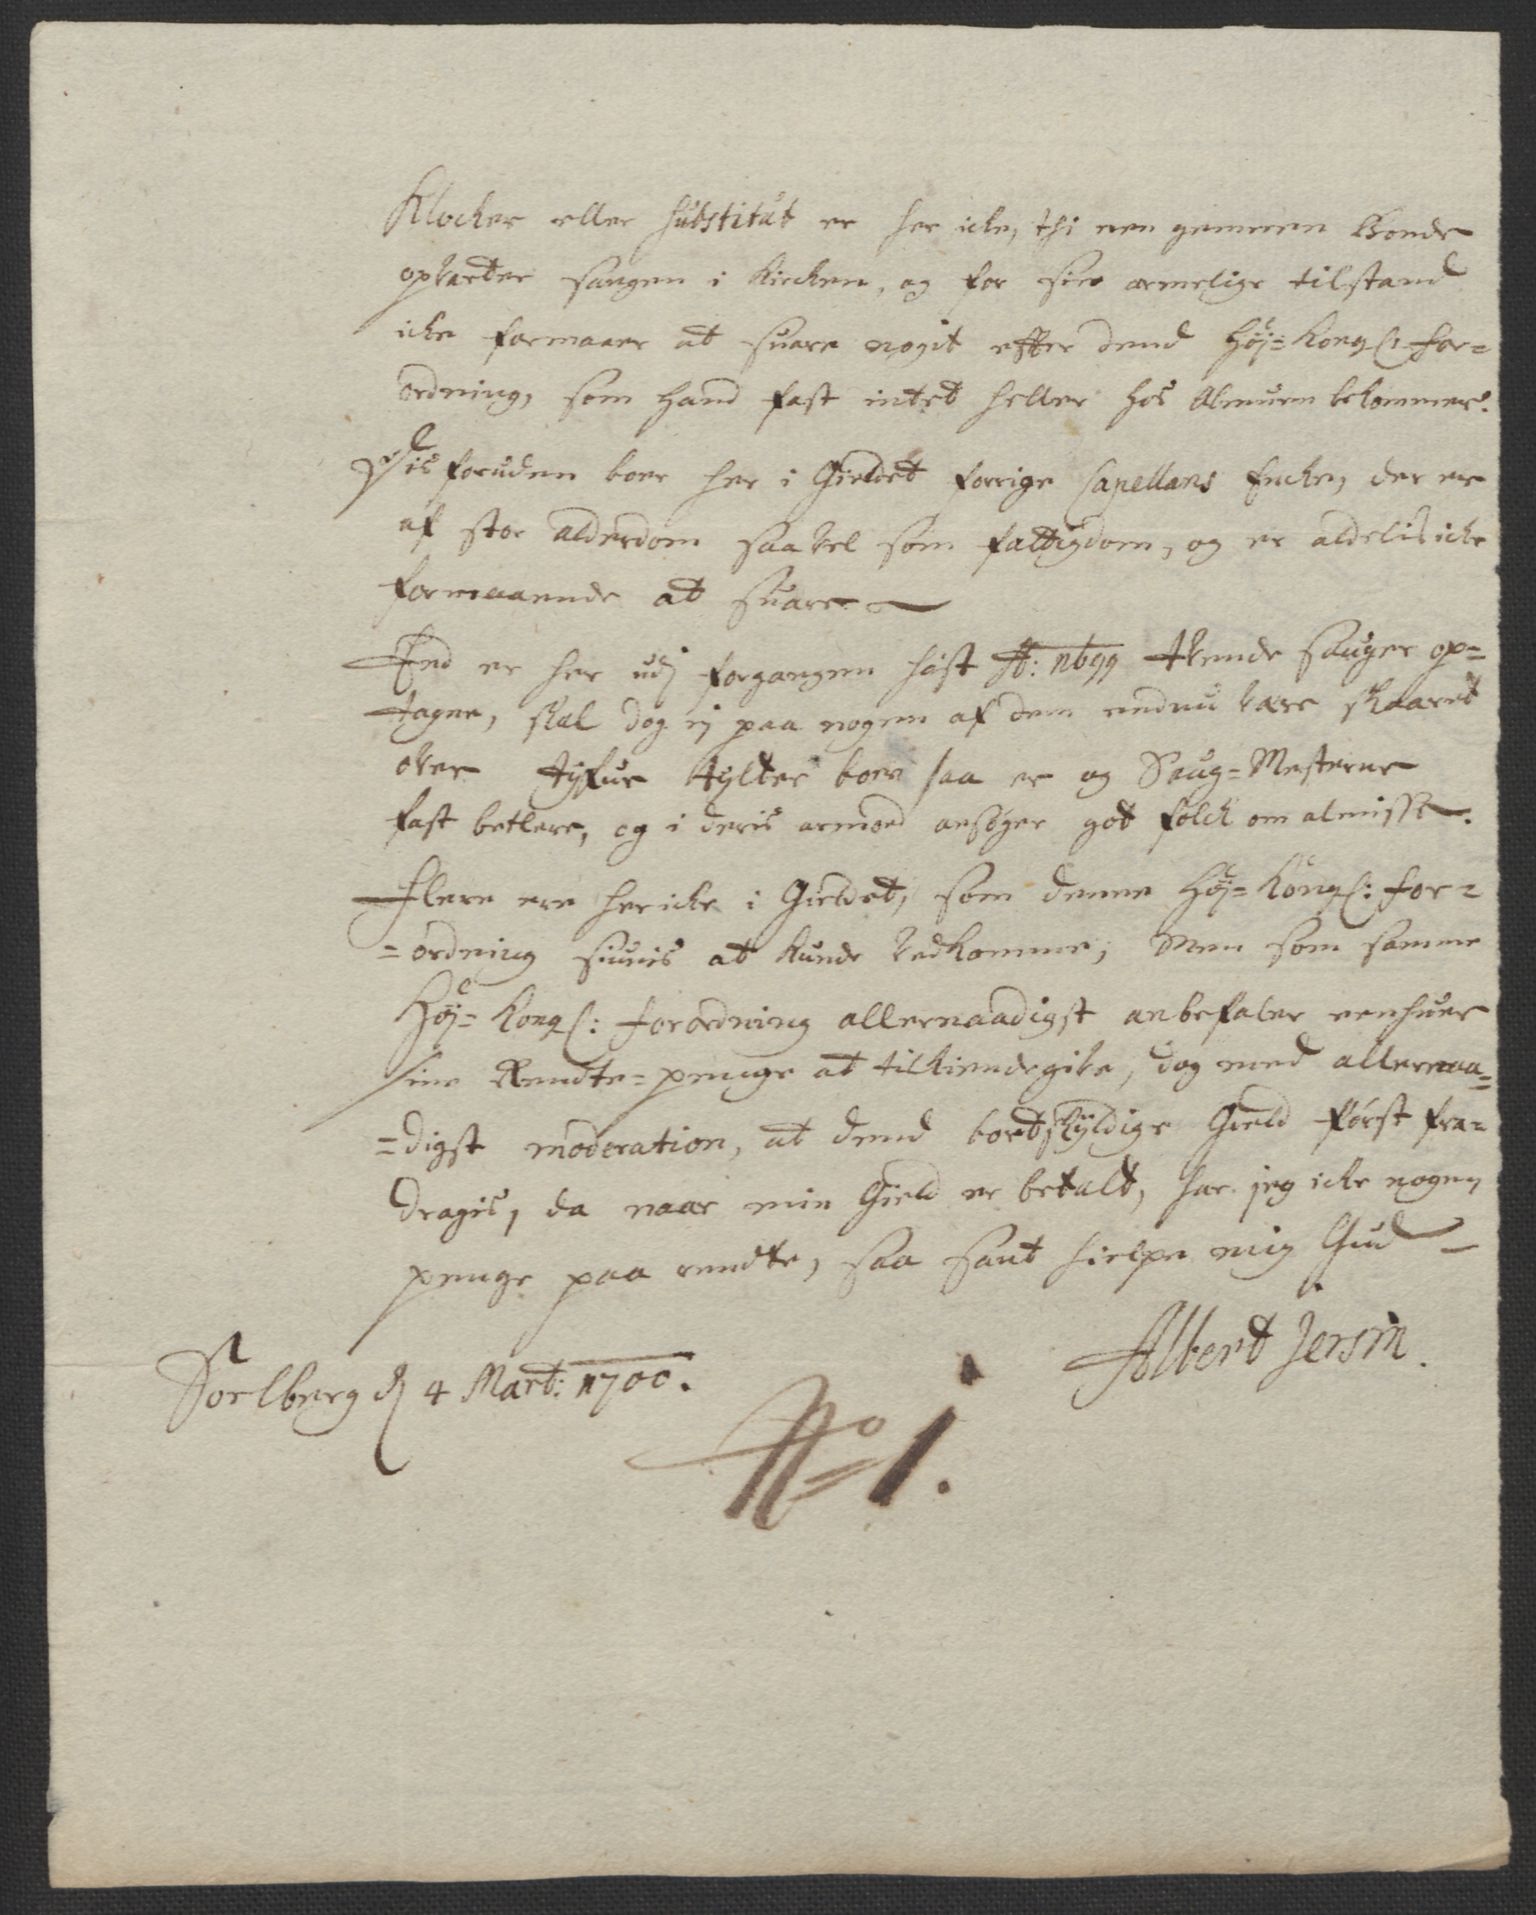 Klocker eller substitut er her icke, thi een gemeen Bonde
opvarter sangen i Kircken, og for sin armelige tilstand
icke formaaer at suare nogit effter dend Høy=Kongl: For=
ordning, som hand fast intet heller hos Almuen bekommer.
Dis foruden boer her i Gieldet forrige Capellans Encke, der er
af stor alderdom saavel som fattigdom, og er aldelis icke
formaaende at suare
End er her udj forgangen høst Ao: 1699 tvende sauger op=
tagne, skal dog ej paa nogen af dem endnu være skaaret
over tyfue tylter boer saa er og Saug=Mesterne
fast betlere, og i deris armod ansøger got folck om almisse.
Flere ere her icke i Gieldet, som denne Høy=Kongl: For=
=ordning siunis at kunde vedkomme; Men som samme
Høy=Kongl: Forordning allernaadigst anbefaler eenhuer
sine Rendte=penge at tilkiendegive, dog med allernaa=
=digst moderation, at dend bortskyldige Gield først fra=
dragis, da naar min Gield er betalt, har jeg icke nogen
penge paa rendte, saa sant hielpe mig Gud
Albert Jersin.
Soelberg d 4 Mart: 1700.
No 1.